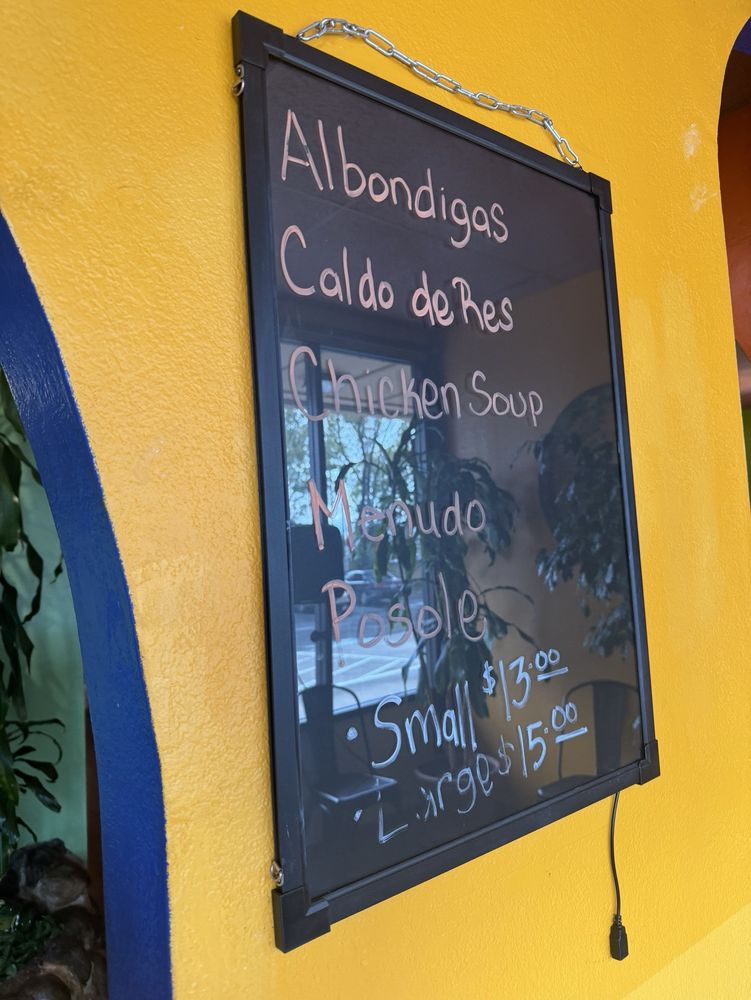 Albondigas
Caldo de Res
Chicken Soup
Menudo
Posole
• Small $13.00
• Large $15.00